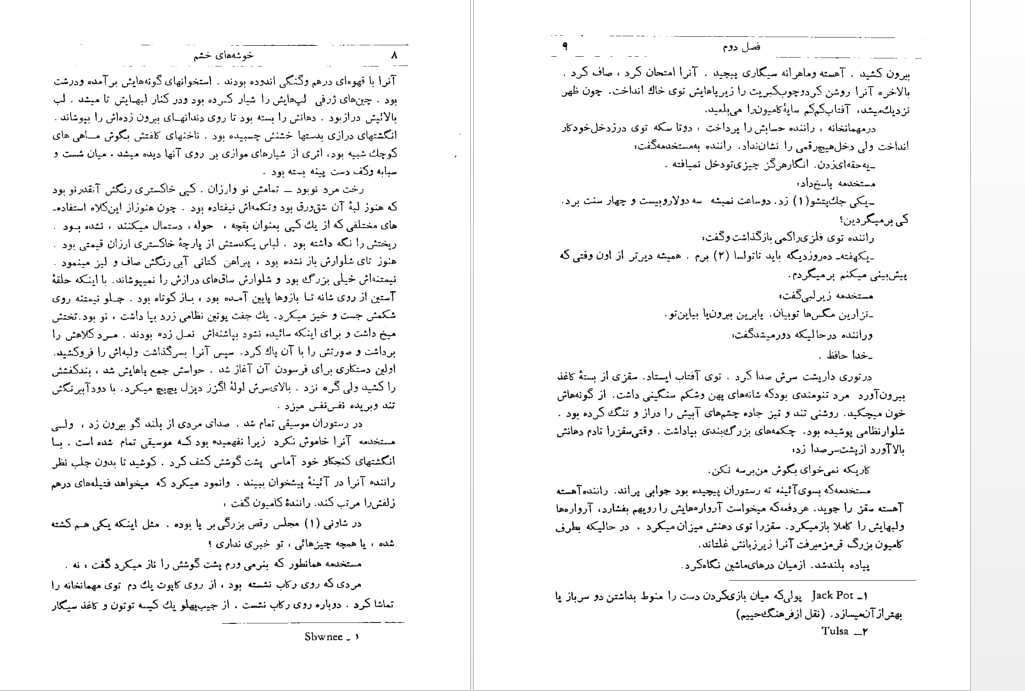 ۸ خوشه‌های خشم
آنرا با قهوه‌ای درهم وگنگی اندوده بودند . استخوانهای گونه‌هایش برآمده ودرشت
بود . چین‌های ژرفی لپ‌هایش را شیار کرده بود ودر کنار لبهایش تا میشد . لب
بالائیش درازبود . دهانش را بسته بود تا روی دندانهای بیرون زده‌اش را بپوشاند .
انگشتهای درازی بدستها خشنش چسبیده بود . ناخنهای کلفتش بگوش ماهی های
کوچك شبیه بود، اثری از شیارهای موازی بر روی آنها دیده میشد . میان شست و
سبابه وکف دست پینه بسته بود .
رخت مرد نوبود ــ تمامش نو وارزان . کپی خاکستری رنگش آنقدرنو بود
که هنوز لبهٔ آن شق‌ورق بود وتکمه‌اش نیفتاده بود . چون هنوزاز این‌کلاه استفاده‌ـ
های مختلفی که از یك کپی بعنوان بقچه ، حوله، دستمال میکنند ، نشده بود .
ریختش را نگه داشته بود . لباس یکدستش از پارچهٔ خاکستری ارزان قیمتی بود .
هنوز تای شلوارش باز نشده بود ، پیراهن کتانی آبی رنگش صاف و لیز مینمود .
نیمتنه‌اش خیلی بزرگ بود و شلوارش ساق‌های درازش را نمیپوشاند. با اینکه حلقهٔ
آستین از روی شانه تـا بازوها پایین آمـده بود ، بـاز کوتاه بود . جـلو نیمتنه روی
شکمش جست و خیز میکرد. یك جفت پوتین نظامی زرد بپا داشت ، نو بود.تختش
میخ داشت و برای اینکه سائیده نشود بپاشنه‌اش نعـل زده بودند . مـرد کلاهش را
برداشت و صورتش را با آن پاك کرد. سپس آنرا بسرگذاشت ولبه‌اش را فروکشید.
اولین دستکاری برای فرسودن آن آغاز شد . حواسش جمع پاهایش شد ، بندکفشش
را کشید ولی گره نزد . بالای‌سرش لولهٔ اگزز دیزل پچ‌پچ میکرد. با دودآبیرنگش
تند وبریده نفس‌نفس میزد .
در رستوران موسیقی تمام شد . صدای مردی از بلند گو بیرون زد ، ولـی
مستخدمه آنرا خاموش نکرد زیرا نفهمیده بود کـه موسیقی تمام شده است . بـا
انگشتهای کنجکاو خود آماسی پشت گوشش کشف کرد . کوشید تا بدون جلب نظر
راننده آنرا در آئینهٔ پیشخوان ببیند . وانمود میکرد که میخواهد فتیله‌های درهم
زلفش‌را مرتب کند. رانندهٔ کامیون گفت ،
در شاونی (۱) مجلس رقص بزرگی بر پا بوده . مثل اینکه یکی هـم کشته
شده ، یا همچه چیزهائی ، تو خبری نداری ؟
مستخدمه همانطور که بنرمی ورم پشت گوشش را ناز میکرد گفت ، نه .
مردی که روی رکاب نشسته بود ، از روی کاپوت یك دم توی مهمانخانه را
تماشا کرد . دوباره روی رکاب نشست . از جیب‌پهلو یك کیسه توتون و کاغذ سیگار
۱ ـ Sbwnee
فصل دوم ۹
بیرون کشید . آهسته وماهرانه سیگاری پیچید . آنرا امتحان کرد ، صاف کرد .
بالاخره آنرا روشن کردوچوب‌کبریت را زیرپاهایش توی خاك انداخت. چون ظهر
نزدیك‌میشد، آفتاب‌کم‌کم سایهٔ‌کامیون‌را می‌بلعید.
درمهمانخانه ، راننده حسابش را پرداخت ، دوتا سکه توی درزدخل‌خودکار
انداخت ولی دخل‌هیچ‌رقمی را نشان‌نداد. راننده به‌مستخدمه‌گفت:
ـ‌یه‌حقه‌ای‌زدن. انگارهرگز چیزی‌تودخل نمیافته .
مستخدمه پاسخ‌داد:
ـ‌یکی جك‌پتشو(۱) زد. دوساعت نمیشه سه دولاروبیست و چهار سنت برد.
کی برمیگردین؟
راننده توی فلزی‌راکمی بازگذاشت وگفت:
ـ‌یکهفته‌ـ ده‌روزدیگه باید تاتولسا (۲) برم . همیشه دیرتر از اون وقتی که
پیش‌بینی میکنم برمیگردم.
مستخدمه زیرلبی‌گفت:
ـ‌نزارین مگس‌ها توبیان. یابرین بیرون‌یا بیاین‌تو.
وراننده درحالیکه دورمیشدگفت:
ـ‌خدا حافظ .
درتوری داریشت سرش صدا کرد . توی آفتاب ایستاد. سقزی از بستهٔ کاغذ
بیرون‌آورد مرد تنومندی بودکه شانه‌های پهن وشکم سنگینی داشت. از گونه‌هاش
خون میچکید. روشنی تند و تیز جاده چشم‌های آبیش را دراز و تنگ کرده بود .
شلوارنظامی پوشیده بود. چکمه‌های بزرگ‌بندی بپاداشت . وقتی‌سقزرا تادم دهانش
بالاآورد ازپشت‌سرصدا زد:
کاریکه نمی‌خوای بگوش من‌برسه نکن.
مستخدمه‌که بسوی‌آئینه ته رستوران پیچیده بود جوابی پراند. راننده‌آهسته
آهسته سقز را جوید. هردفعه‌که میخواست آرواره‌هایش را رویهم بفشارد، آرواره‌ها
ولبهایش را کاملا بازمیکرد. سقزرا توی دهنش میزان میکرد . در حالیکه بطرف
کامیون بزرگ قرمزمیرفت آنرا زیرزبانش غلتاند.
پیاده بلندشد. ازمیان درهای‌ماشین نگاه‌کرد.
۱ـ Jack Pot پولی‌که میان بازی‌کردن دست را منوط بداشتن دو سرباز یا
بهترازآن‌میسازد. (نقل ازفرهنگ‌حییم)
۲ــ Tulsa